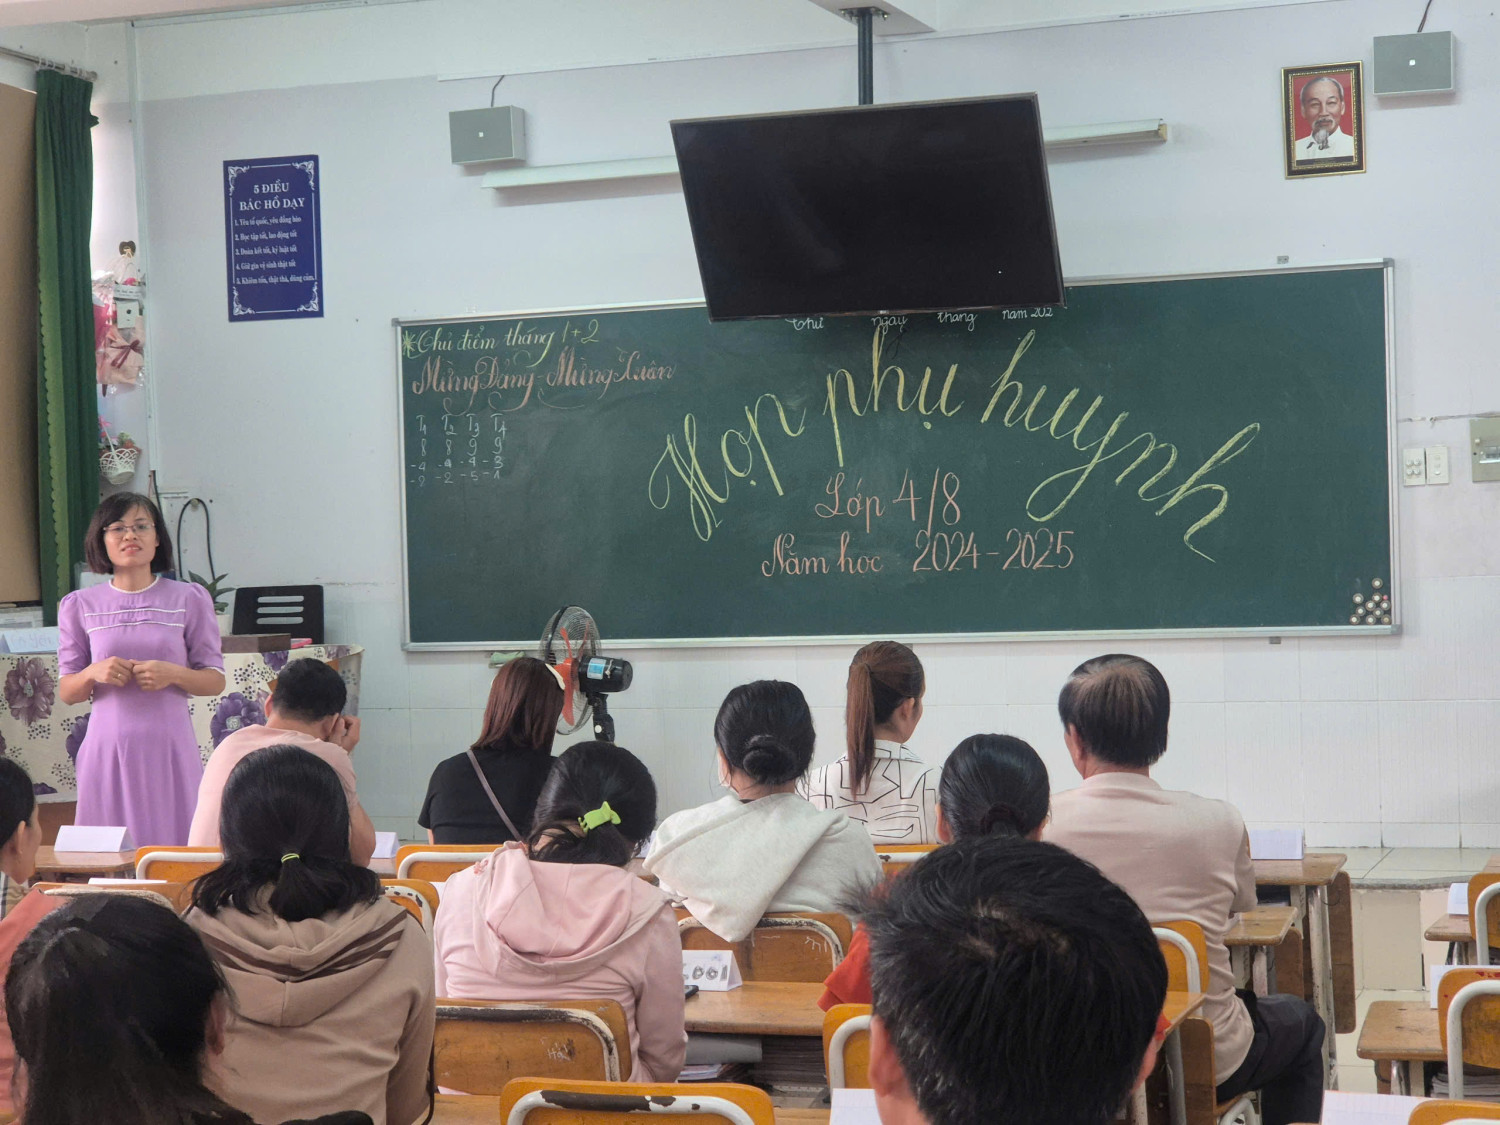 5 ĐIỀU
BÁC HỒ DẠY
1. Yêu tổ quốc, yêu đồng bào
2. Học tập tốt, lao động tốt
3. Đoàn kết tốt, kỷ luật tốt
4. Giữ gìn vệ sinh thật tốt
5. Khiêm tốn, thật thà, dũng cảm.
Thứ ngày tháng năm 202
Chủ điểm tháng 1+2
Mừng Đảng - Mừng Xuân
T1 T2 T3 T4
8 8 9 9
-4 -4 -4 -3
-2 -2 -5 -1
Họp phụ huynh
Lớp 4/8
Năm học 2024-2025